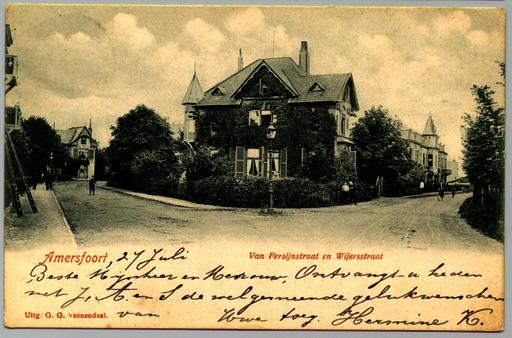 Amersfoort, 27 Juli
Van Persijnstraat en Wijersstraat
Beste Mijnheer en Mevrouw, Ontvangt u heden
met J, A. en S de welgemeende gelukwenschen
Uitg. G. G. Veenendaal.
van Uwe toeg. Hermine K.